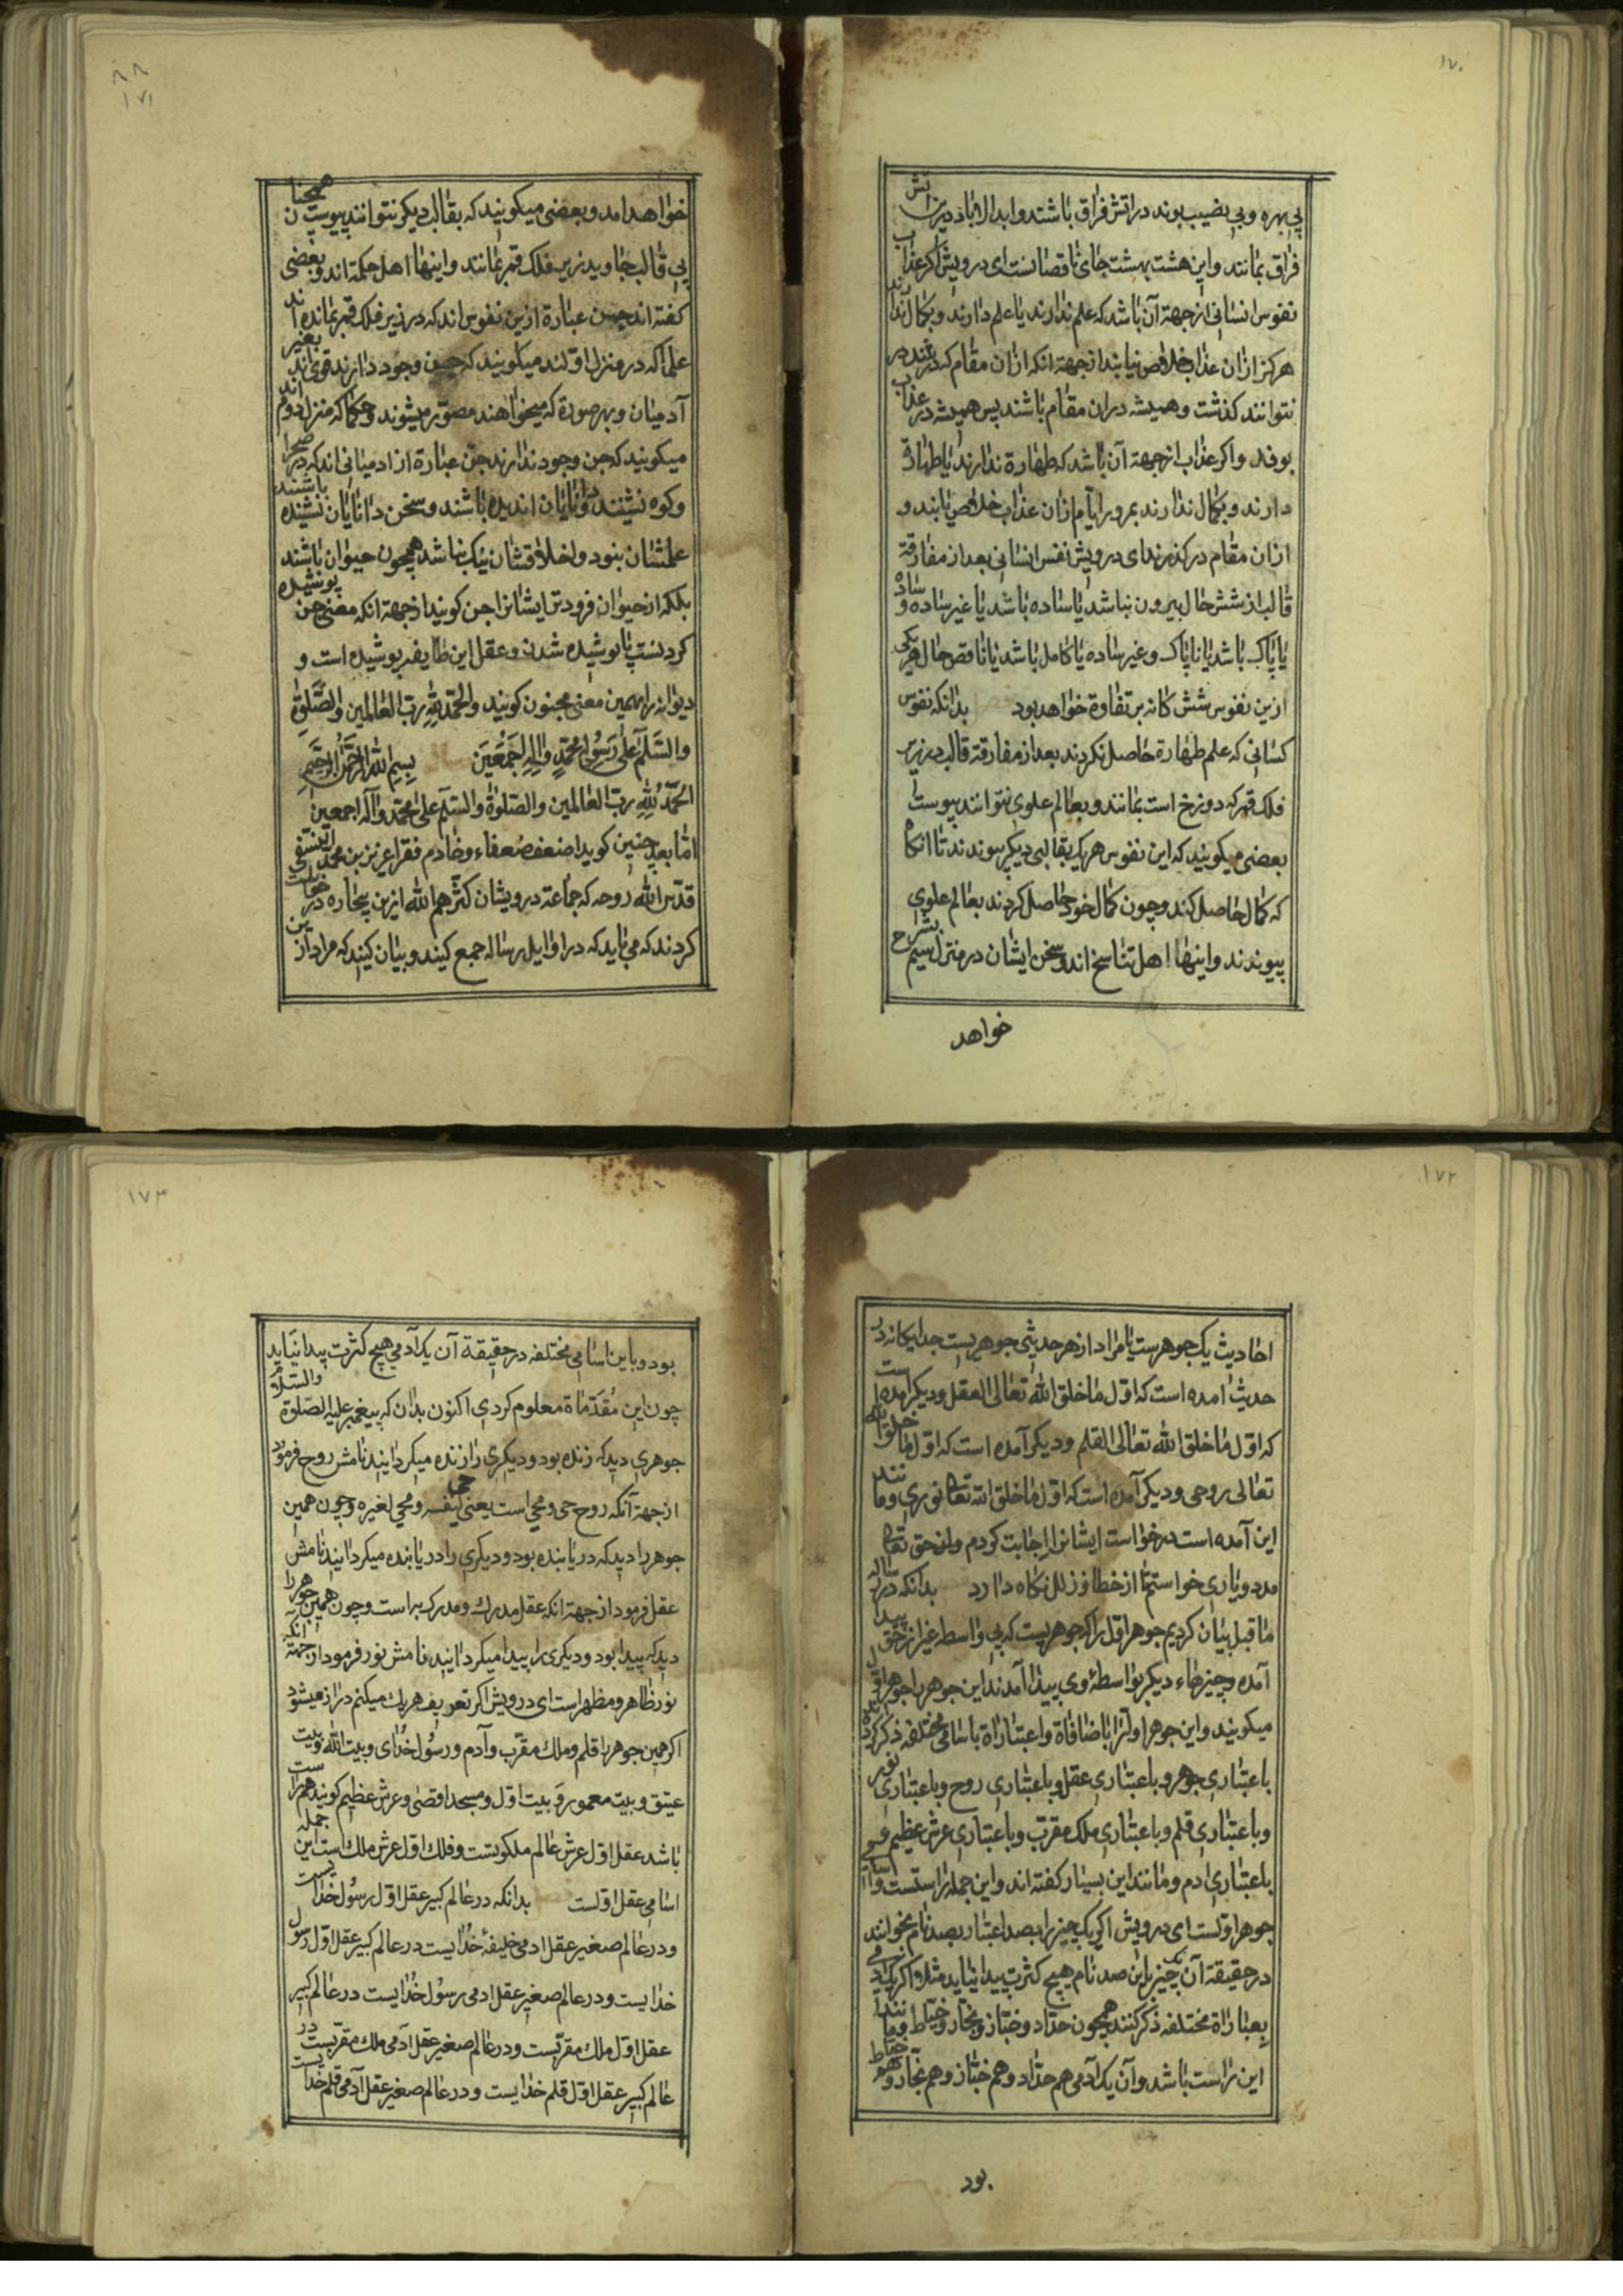 ١٧٠
بی بهره و بی نصیب بوند در اتش فراق باشتد و ابدالاباد درین اتش
فراق بمانند و این هشت بهشت جای ناقصانست ای درویش اکر عذاب
نفوس انسانی از جهة آن باشد که علم ندارند یا علم دارند و بکمال ندارند
هرکز ازان عذاب خلاص نیابند از جهة انکه ازان مقام که در
نتوانند کذشت و همیشه دران مقام باشند پس همیشه در عذاب
بوند و اکر عذاب از جهة آن باشد که طهارة ندارند یا طهارة
دارند و بکمال ندارند بمرور ایام ازان عذاب خلاص یابند و
ازان مقام درکذرند ای درویش نفس انسانی بعد از مفارقة
قالب از شش حال بیرون نباشد یا ساده باشد یا غیر ساده و ساده
یا پاک باشد یا ناپاک و غیر ساده یا کامل باشد یا ناقص حال هر یکی
ازین نفوس شش کانه بر تفاوة خواهد بود بدانکه نفوس
کسانی که علم طهارة حاصل نکردند بعد از مفارقة قالب در زیر
فلک قمر که دوزخ است بمانند و بعالم علوی نتوانند پیوست
بعضی میکویند که این نفوس هر یک بقالبی دیکر پیوندند تا انکاه
که کمال حاصل کنند و چون کمال خود حاصل کردند بعالم علوی
پیوندند و اینها اهل تناسخ اند و سخن ایشان در منزل سیم بشرح
خواهد
١٧١
خواهد امد و بعضی میکویند که بقالب دیکر نتوانند پیوست همچنان
بی قالب جاوید زیر فلک قمر بمانند و اینها اهل حکمة اند و بعضی
کفته اند جن عبارة ازین نفوس اند که در زیر فلک قمر بمانده اند
علما که در منزل اولند میکویند که جن وجود دارند قومی اند بغیر
آدمیان و بهر صورة که میخواهند مصور میشوند و حکما که منزل دوم اند
میکویند که جن وجود ندارند جن عبارة از ادمیانی اند که در صحرا
و کوه نشینند و دانایان ندیده باشند و سخن دانایان نشنیده باشند
علمشان نبود و اخلاقشان نیک نباشد همچون حیوان باشند
بلکه از حیوان فروتر ایشانرا جن کویند از جهة انکه معنی جن پوشیده
کردنست یا پوشیده شدن و عقل این طایفه پوشیده است و
دیوانه را بهمین معنی مجنون کویند والحمد لله رب العالمین والصلوة
والسلم علی رسوله محمد واله اجمعین بسم الله الرحمن الرحیم
الحمد لله رب العالمین والصلوة والسلم علی محمد وآله اجمعین
اما بعد چنین کوید اضعف ضعفاء و خادم فقرا عزیز بن محمد النسفی
قدس الله روحه که جماعة درویشان کثرهم الله ازین بیچاره درخواست
کردند که می باید که در اوایل رساله جمع کنید و بیان کنید که مراد ازین
١٧٢
احادیث یک جوهرست یا مراد از هر حدیثی جوهریست جداکانه در
حدیث امده است که اول ما خلق الله تعالی العقل و دیکر امده است
که اول ما خلق الله تعالی القلم و دیکر آمده است که اول ما خلق الله
تعالی روحی و دیکر آمده است که اول ما خلق الله تعالی نوری و مانند
این آمده است درخواست ایشانرا اجابت کردم و از حق تعالی
مدد و یاری خواستم تا از خطا و زلل نکاه دارد بدانکه در رساله
ما قبل بیان کردیم جوهر اول را که جوهریست که بی واسطه غیر از حق پیدا
آمده و چیزهاء دیکر بواسطهٔ وی پیدا آمدند این جوهر را جوهر اول
میکویند و این جوهر اول را باضافاة و اعتباراة باسامی مختلفه ذکر کرده اند
باعتباری جوهر و باعتباری عقل و باعتباری روح و باعتباری نور
و باعتباری قلم و باعتباری ملک مقرب و باعتباری عرش عظیم و
باعتباری ادم و مانند این بسیار کفته اند و این جمله راستست و اسامی
جوهر اولست ای درویش اکر یک چیز را بصد اعتبار بصد نام بخوانند
در حقیقة آن یک چیز باین صد نام هیچ کثرت پیدا نیاید مثلا اکر یک آدمی
بعباراة مختلفه ذکر کنند همچون حداد و خباز و نجار و خیاط و مانند
این راست باشد و آن یک آدمی هم حداد و هم خباز و هم نجار و هم خیاط
بود
١٧٣
بود و باین اسامی مختلفه در حقیقة آن یک آدمی هیچ کثرت پیدا نیاید
چون این مقدماة معلوم کردی اکنون بدان که پیغمبر علیه الصلوة والسلام
جوهری دید که زنده بود و دیکری را زنده میکردانید نامش روح فرمود
از جهة آنکه روح حی و محی است یعنی حی لنفسه و محی لغیره و چون همین
جوهر را دید که دریابنده بود و دیکری را دریابنده میکردانید نامش
عقل فرمود از جهة انکه عقل مدرک و مدرک براست و چون همین جوهر را
دید که پیدا بود و دیکری را پیدا میکردانید نامش نور فرمود از جهة آنکه
نور ظاهر و مظهر است ای درویش اکر تعریف هر یک میکنم دراز میشود
اکر همین جوهر را قلم و ملک مقرب و آدم و رسول خدای و بیت الله و بیت
عتیق و بیت معمور و بیت اول و مسجد اقصی و عرش عظیم کویند هم راست
باشد عقل اول عرش عالم ملکوتست و فلک اول عرش ملک است این جمله
اسامی عقل اولست بدانکه در عالم کبیر عقل اول رسول خدایست
و در عالم صغیر عقل ادمی خلیفهٔ خدایست در عالم کبیر عقل اول رسول
خدایست و در عالم صغیر عقل ادمی رسول خدایست در عالم کبیر
عقل اول ملک مقربست و در عالم صغیر عقل آدمی ملک مقربست در
عالم کبیر عقل اول قلم خدایست و در عالم صغیر عقل آدمی قلم خدایست